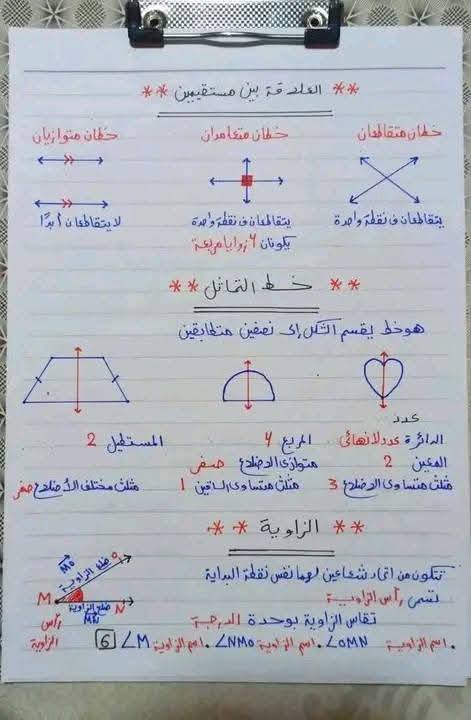 ** العلاقة بين مستقيمين **
خطان متقاطعان خطان متعامدان خطان متوازيان
يتقاطعان في نقطة واحدة يتقاطعان في نقطة واحدة لا يتقاطعان أبدًا
يكونان 4 زوايا مربعة
** خط التماثل **
هو خط يقسم الشكل إلى نصفين متطابقين
عدد
الدائرة عدد لا نهائي المربع 4 المستطيل 2
المعين 2 متوازي الاضلاع صفر
مثلث متساوي الاضلاع 3 مثلث متساوي الساقين 1 مثلث مختلف الأضلاع صفر
** الزاوية **
تتكون من اتحاد شعاعين لهما نفس نقطة البداية
تسمى رأس الزاوية
تقاس الزاوية بوحدة الدرجة
MO ضلع الزاوية O
M ضلع الزاوية N
MN
رأس الزاوية
. اسم الزاوية ∠OMN . اسم الزاوية ∠NMO . اسم الزاوية ∠M 6